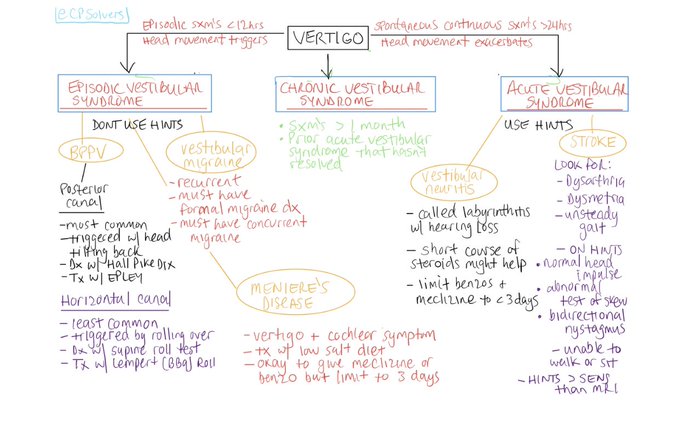 @CPSolvers
Episodic sxm's <12hrs
Head movement triggers
VERTIGO
spontaneous continuous sxm's >24hrs
Head movement exacerbates
EPISODIC VESTIBULAR
SYNDROME
CHRONIC VESTIBULAR
SYNDROME
ACUTE VESTIBULAR
SYNDROME
DONT USE HINTS
BPPV
Posterior
canal
- most common
- triggered w/ head
tilting back
- Dx w/ Hall Pike Dix
- Tx w/ EPLEY
Horizontal canal
- least common
- triggered by rolling over
- Dx w/ supine roll test
- Tx w/ Lempert (BBQ) Roll
vestibular
migraine
- recurrent
- must have
formal migraine dx
- must have concurrent
migraine
MENIERE'S
DISEASE
- vertigo + cochlear symptom
- tx w/ low salt diet
- okay to give meclizine or
benzo but limit to 3 days
• sxm's > 1 month
• Prior acute vestibular
syndrome that hasn't
resolved
USE HINTS
vestibular
neuritis
- called labyrinthitis
w/ hearing loss
- short course of
steroids might help
- limit benzos +
meclizine to <3days
STROKE
LOOK FOR:
- Dysarthria
- Dysmetria
- unsteady
gait
- ON HINTS
• normal head
impulse
• abnormal
test of skew
• bidirectional
nystagmus
- unable to
walk or sit
- HINTS > SENS
than MRI